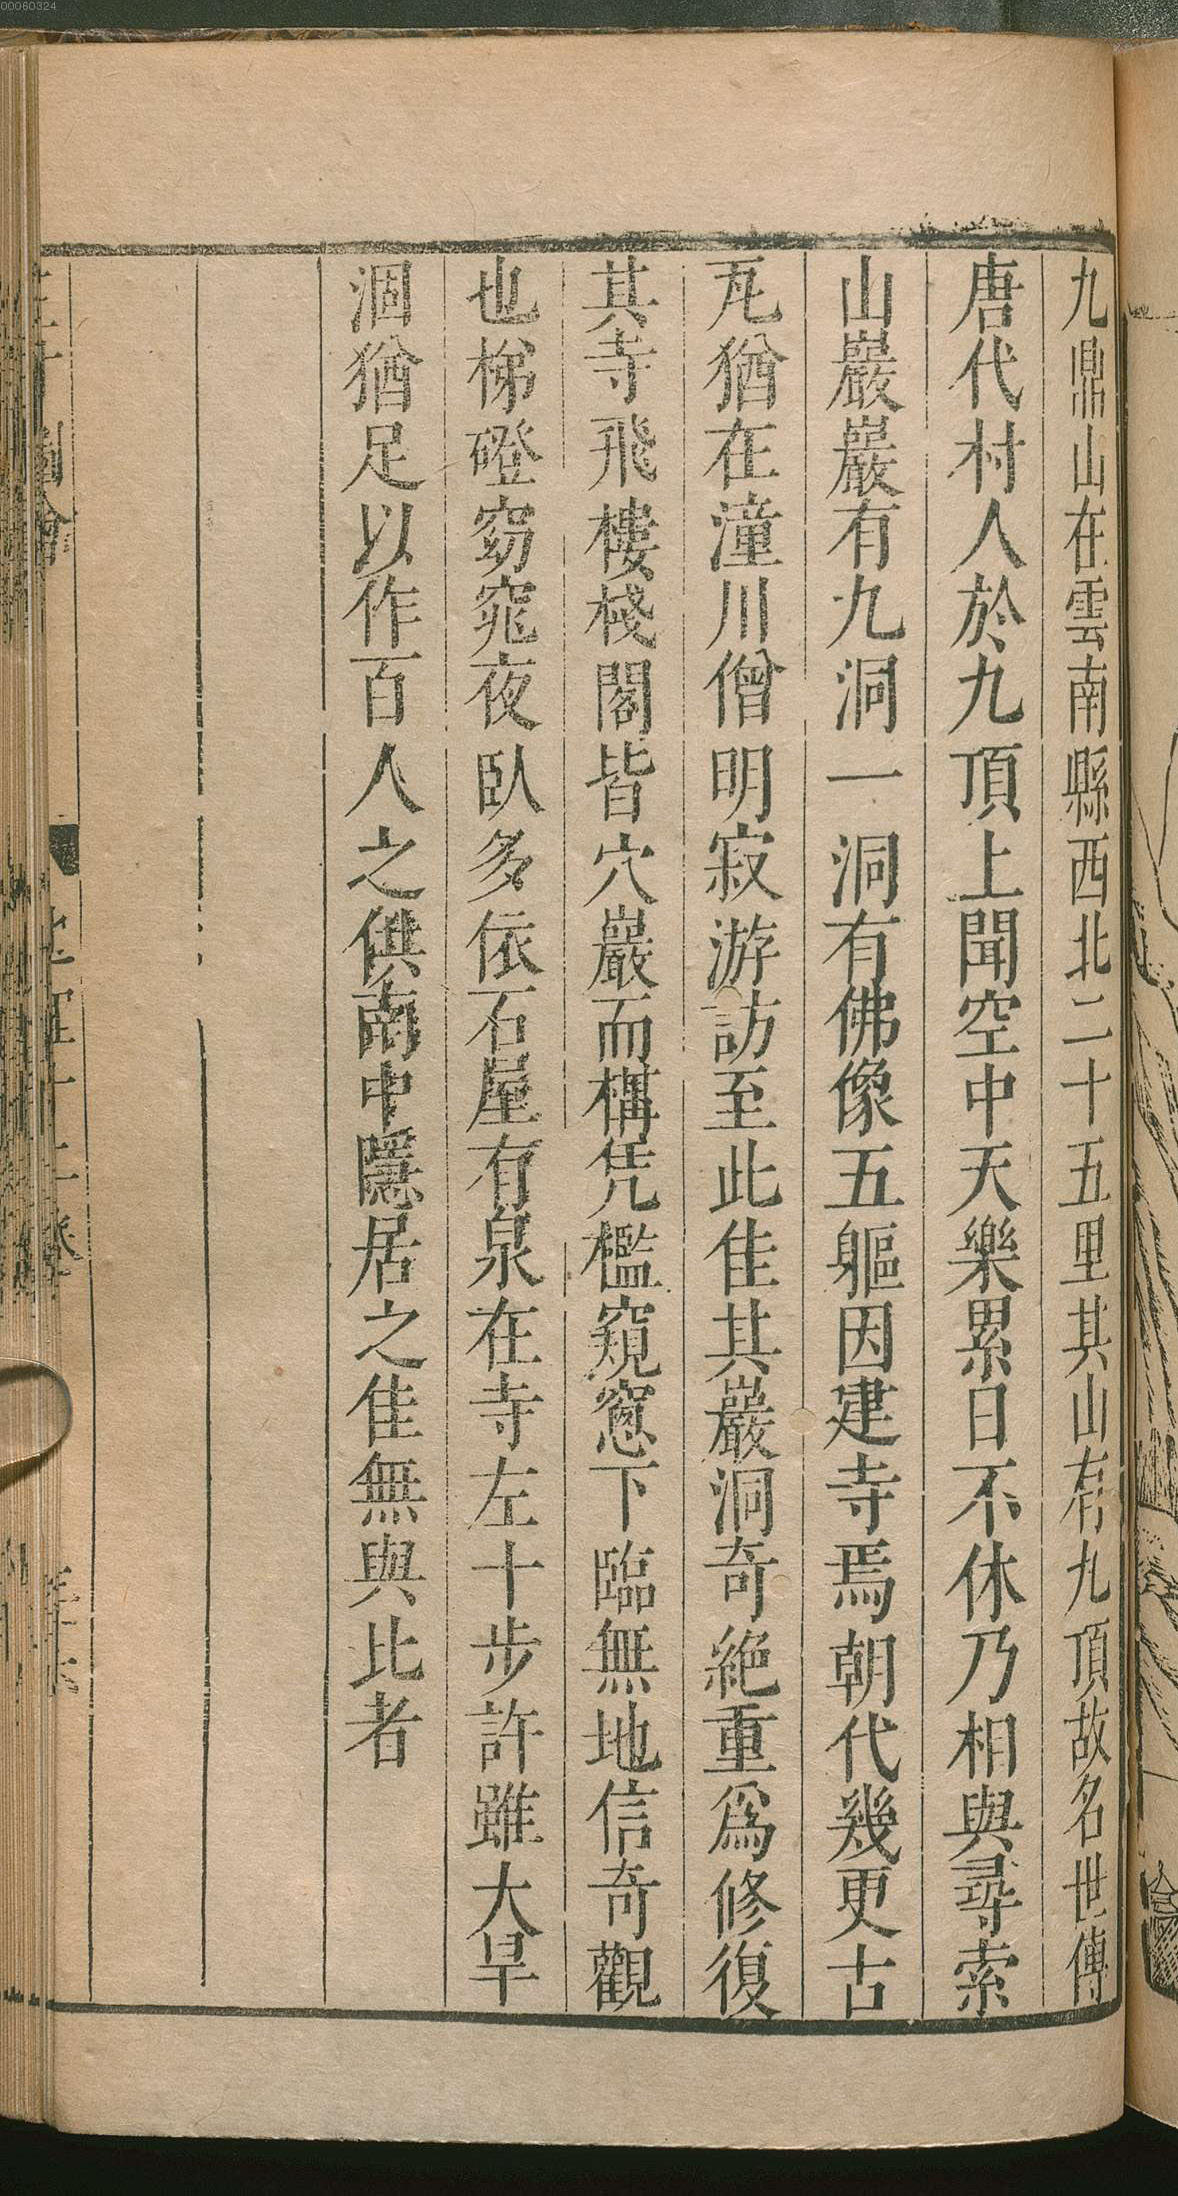 00060324
九鼎山在雲南縣西北二十五里其山有九頂故名世傳
唐代村人於九頂上聞空中天樂累日不休乃相與尋索
山巖巖有九洞一洞有佛像五軀因建寺焉朝代幾更古
瓦猶在潼川僧明寂游訪至此佳其巖洞奇絶重爲修復
其寺飛樓棧閣皆穴巖而構凭檻窺窻下臨無地信奇觀
也梯磴窈窕夜臥多依石屋有泉在寺左十步許雖大旱
涸猶足以作百人之供南中隱居之佳無與比者